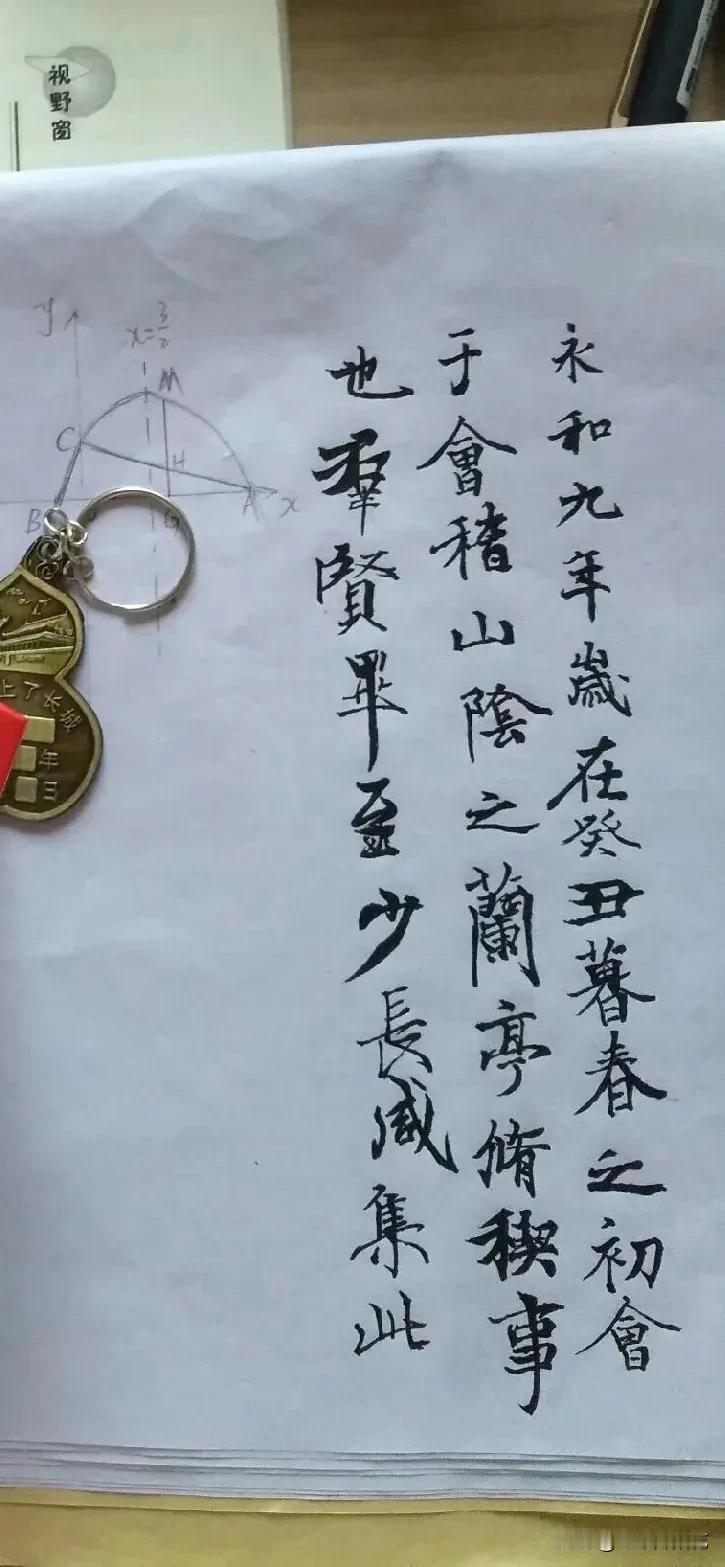 视野窗
永和九年歲在癸丑暮春之初會
于會稽山陰之蘭亭脩稧事
也羣賢畢至少長咸集此
y
x=3/2
M
C
H
B
G
A
x
上了长城
年
日